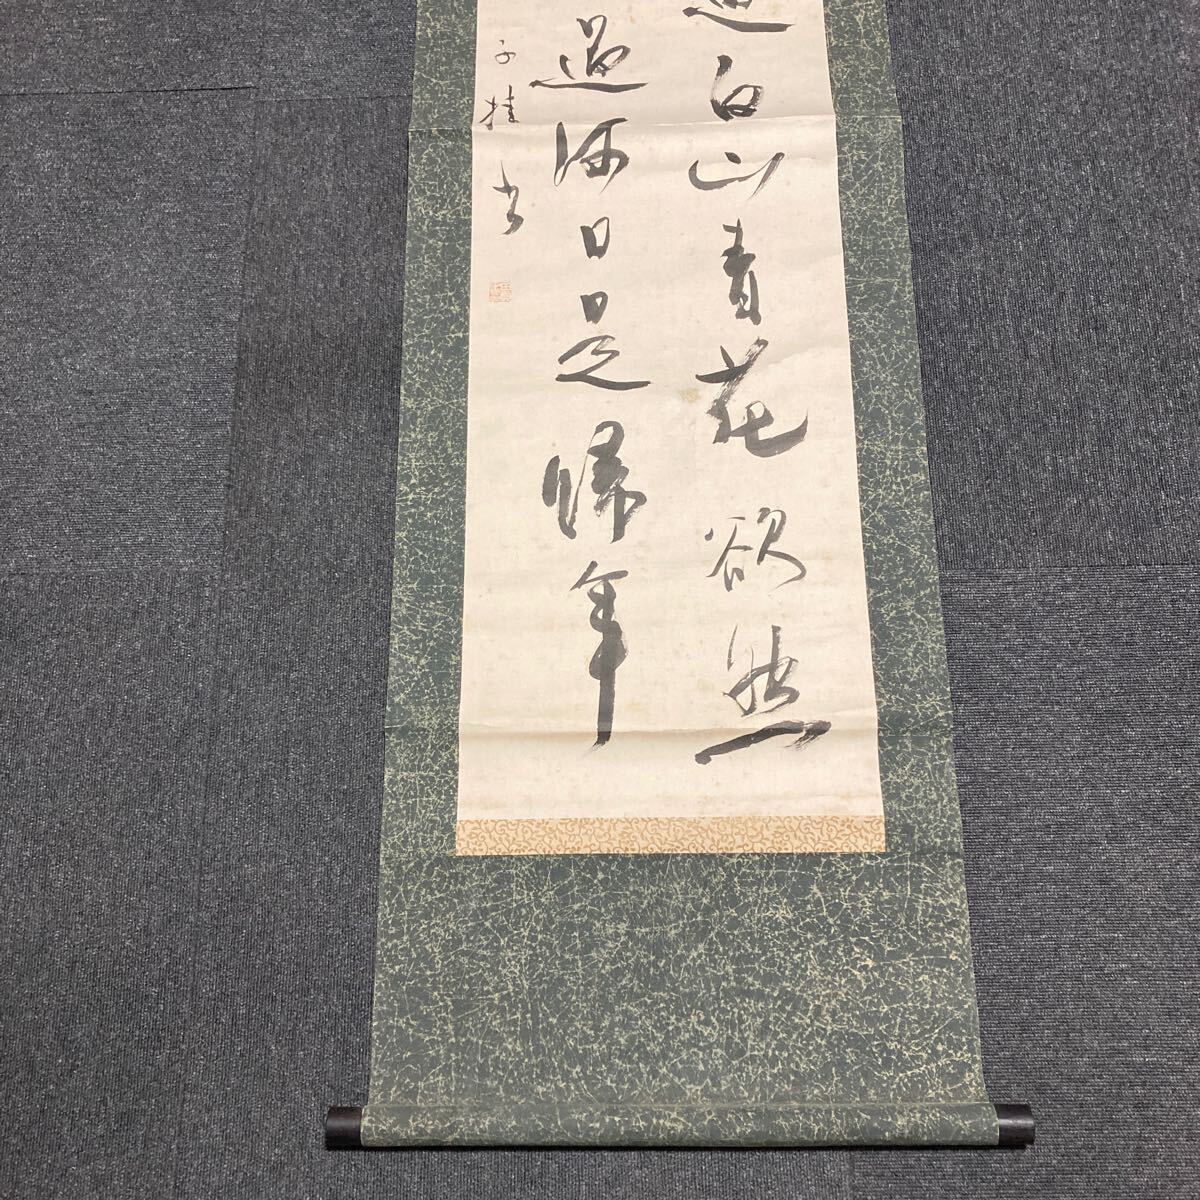 逾白山青花欲然
過何日是歸年
子桂書